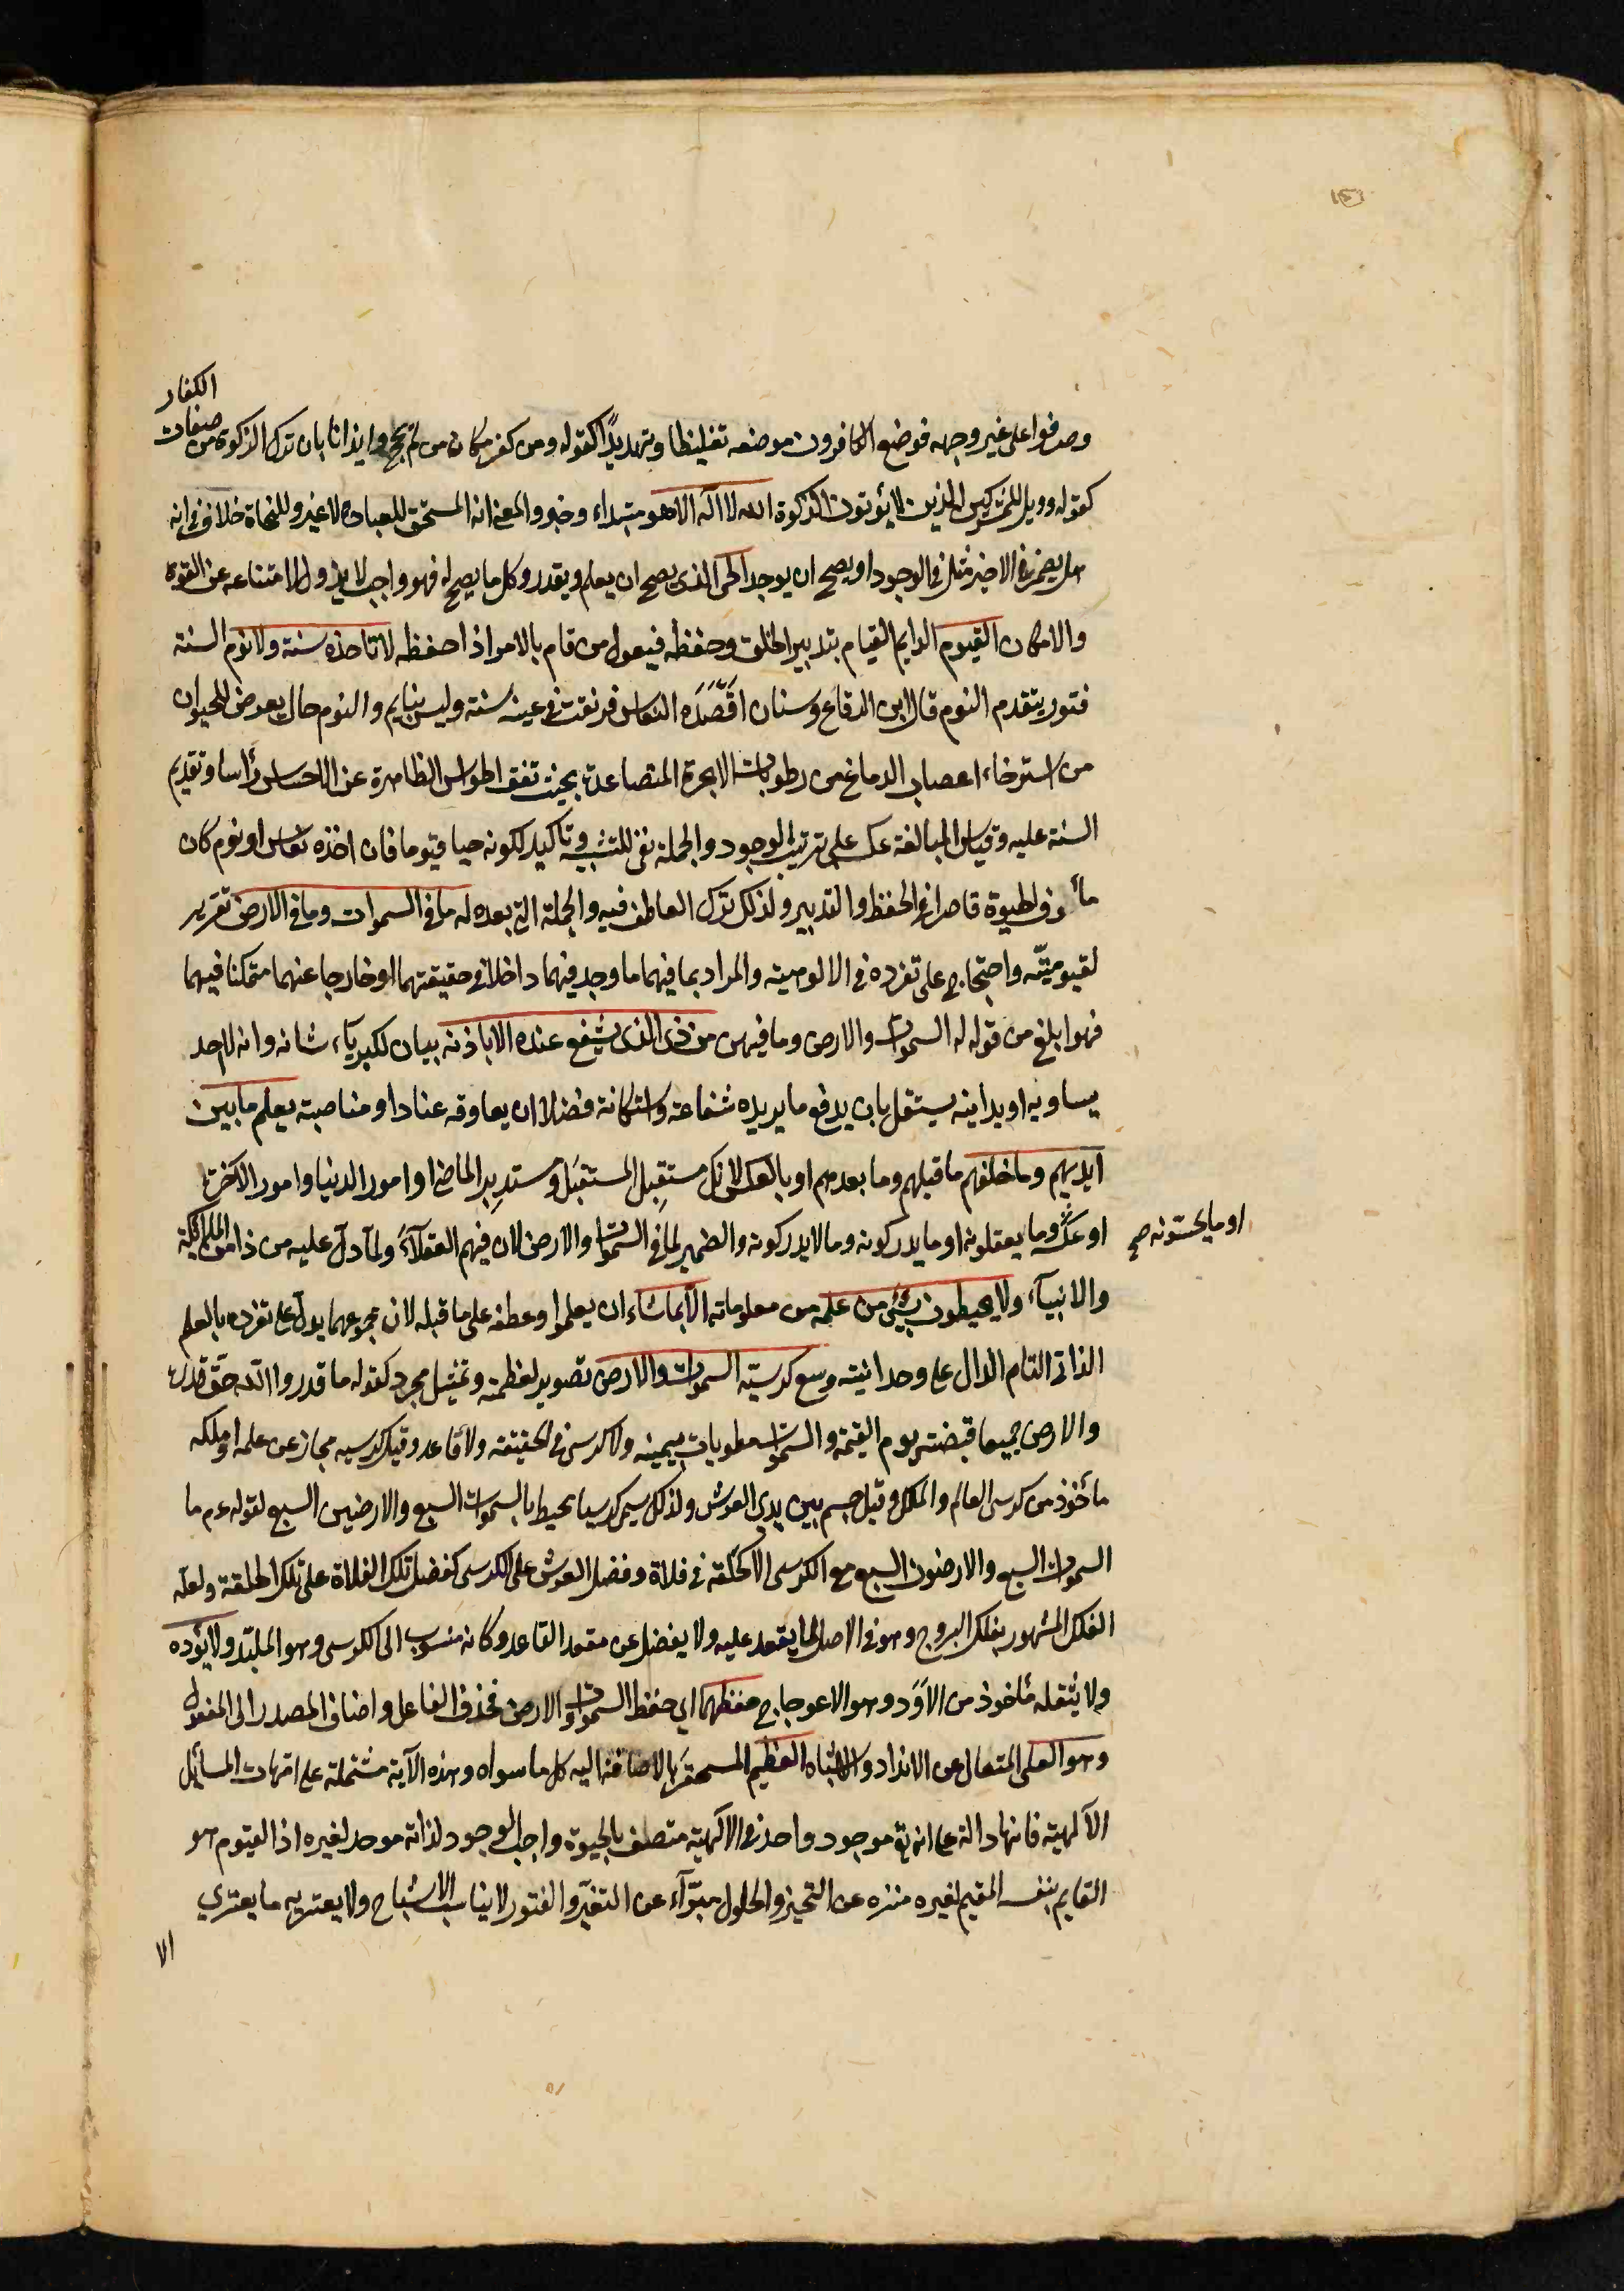 الكفار
وصرفوا على غير وجهه فوضع الكافرون موضعه تغليظا وتهديدًا كقوله ومن كفر مكان من لم يحج وايذانا بان ترك الزكوة من صفات
كقوله وويل للمشركين الذين لا يؤتون الزكوة الله لا اله الا هو مبتداء وخبر والمعنى انه المستحق للعبادة لا غير وللنحاة خلاف في انه
هل يضمر في الاخير مثل في الوجود او يصح ان يوجد الحى الذى يصح ان يعلم ويقدر وكل ما يصح له فهو واجب لا يزول لامتناعه عن القوة
والامكان القيوم الدايم القيام بتدبير الخلق وحفظه فيعول من قام بالامر اذا حفظه لا تاخذه سنة ولا نوم السنة
فتور يتقدم النوم قال ابن الدقاع وسنان اقصَدَه النعاس فرنقت في عينه سنة وليس بنايم والنوم حال يعرض للحيوان
من استرخاء اعصاب الدماغ من رطوبات الابخرة المتصاعدة بحيث تقف الحواس الظاهرة عن الاحساس رأسا وتقديم
السنة عليه وقياس المبالغة عكسه على ترتيب الوجود والجملة نفى للتشبيه وتاكيد لكونه حيا قيوما فان من اخذه نعاس او نوم كان
مأوف الحيوة قاصرا في الحفظ والتدبير ولذلك ترك العاطف فيه والجملة التي بعده له ما في السموات وما في الارض تقرير
لقيوميته واحتجاج على تفرده في الالوهية والمراد بما فيهما ما وجد فيهما داخلا في حقيقتهما او خارجا عنهما متمكنا فيهما
فهو ابلغ من قوله له السموات والارض وما فيهن من ذى الذى يشفع عنده الا باذنه بيان لكبرياء شانه وانه لا احد
يساويه او يدانيه يستقل بان يدفع ما يريده شفاعة واستكانة فضلا ان يعاوقه عنادا او مناصبة يعلم ما بين
ايديهم وما خلفهم ما قبلهم وما بعدهم او بالعكس لانك مستقبِل المستقبَل ومستدبِر الماضى او امور الدنيا وامور الآخرة
او عكسه وما يعقلونه او ما يدركونه وما لا يدركونه والضمير لما في السموات والارض لان فيهم العقلاء ولما دل عليه من ذا من الملائكة
او ما يحسونه صح
والانبيآء ولا يحيطون بشئ من علمه من معلوماته الا بما شاء ان يعلموا وعطفه على ما قبله لان مجموعهما يدل على تفرده بالعلم
الذاتى التام الدال على وحدانيته وسع كرسيه السموات والارض تصوير لعظمته وتمثيل مجرد كقوله ما قدروا الله حق قدره
والارض جميعا قبضته يوم القيمة والسموات مطويات بيمينه ولا كرسى في الحقيقة ولا قاعد وقيل كرسيه مجاز عن علمه او ملكه
مأخوذ من كرسى العالم والملك وقيل جسم بين يدي العرش ولذلك سمى كرسيا محيط بالسموات السبع والارضين السبع لقوله عم ما
السموات السبع والارضون السبع مع الكرسى الا كحلقة في فلاة وفضل العرش على الكرسى كفضل تلك الفلاة على تلك الحلقة ولعله
الفلك المشهور بفلك البروج وهو في الاصل لما يقعد عليه ولا يفضل عن مقعد القاعد وكانه منسوب الى الكرسى وهو الملبد ولا يؤده
ولا يثقله مأخوذ من الاوَد وهو الاعوجاج حفظهما اى حفظ السموات والارض فحذف الفاعل واضاف المصدر الى المفعول
وهو العلى المتعال عن الانداد والاشباه العظيم المستحقر بالاضافة اليه كل ما سواه وهذه الآية مشتملة على امهات المسائل
الآلهية فانها دالة على انه تع موجود واحد في الالهية متصف بالحيوة واجب الوجود لذاته موجد لغيره اذ القيوم هو
القايم بنفسه المقيم لغيره منزه عن التحيز والحلول مبرآء عن التغير والفتور لا يناسب الاشباح ولا يعتريه ما يعتري
الا